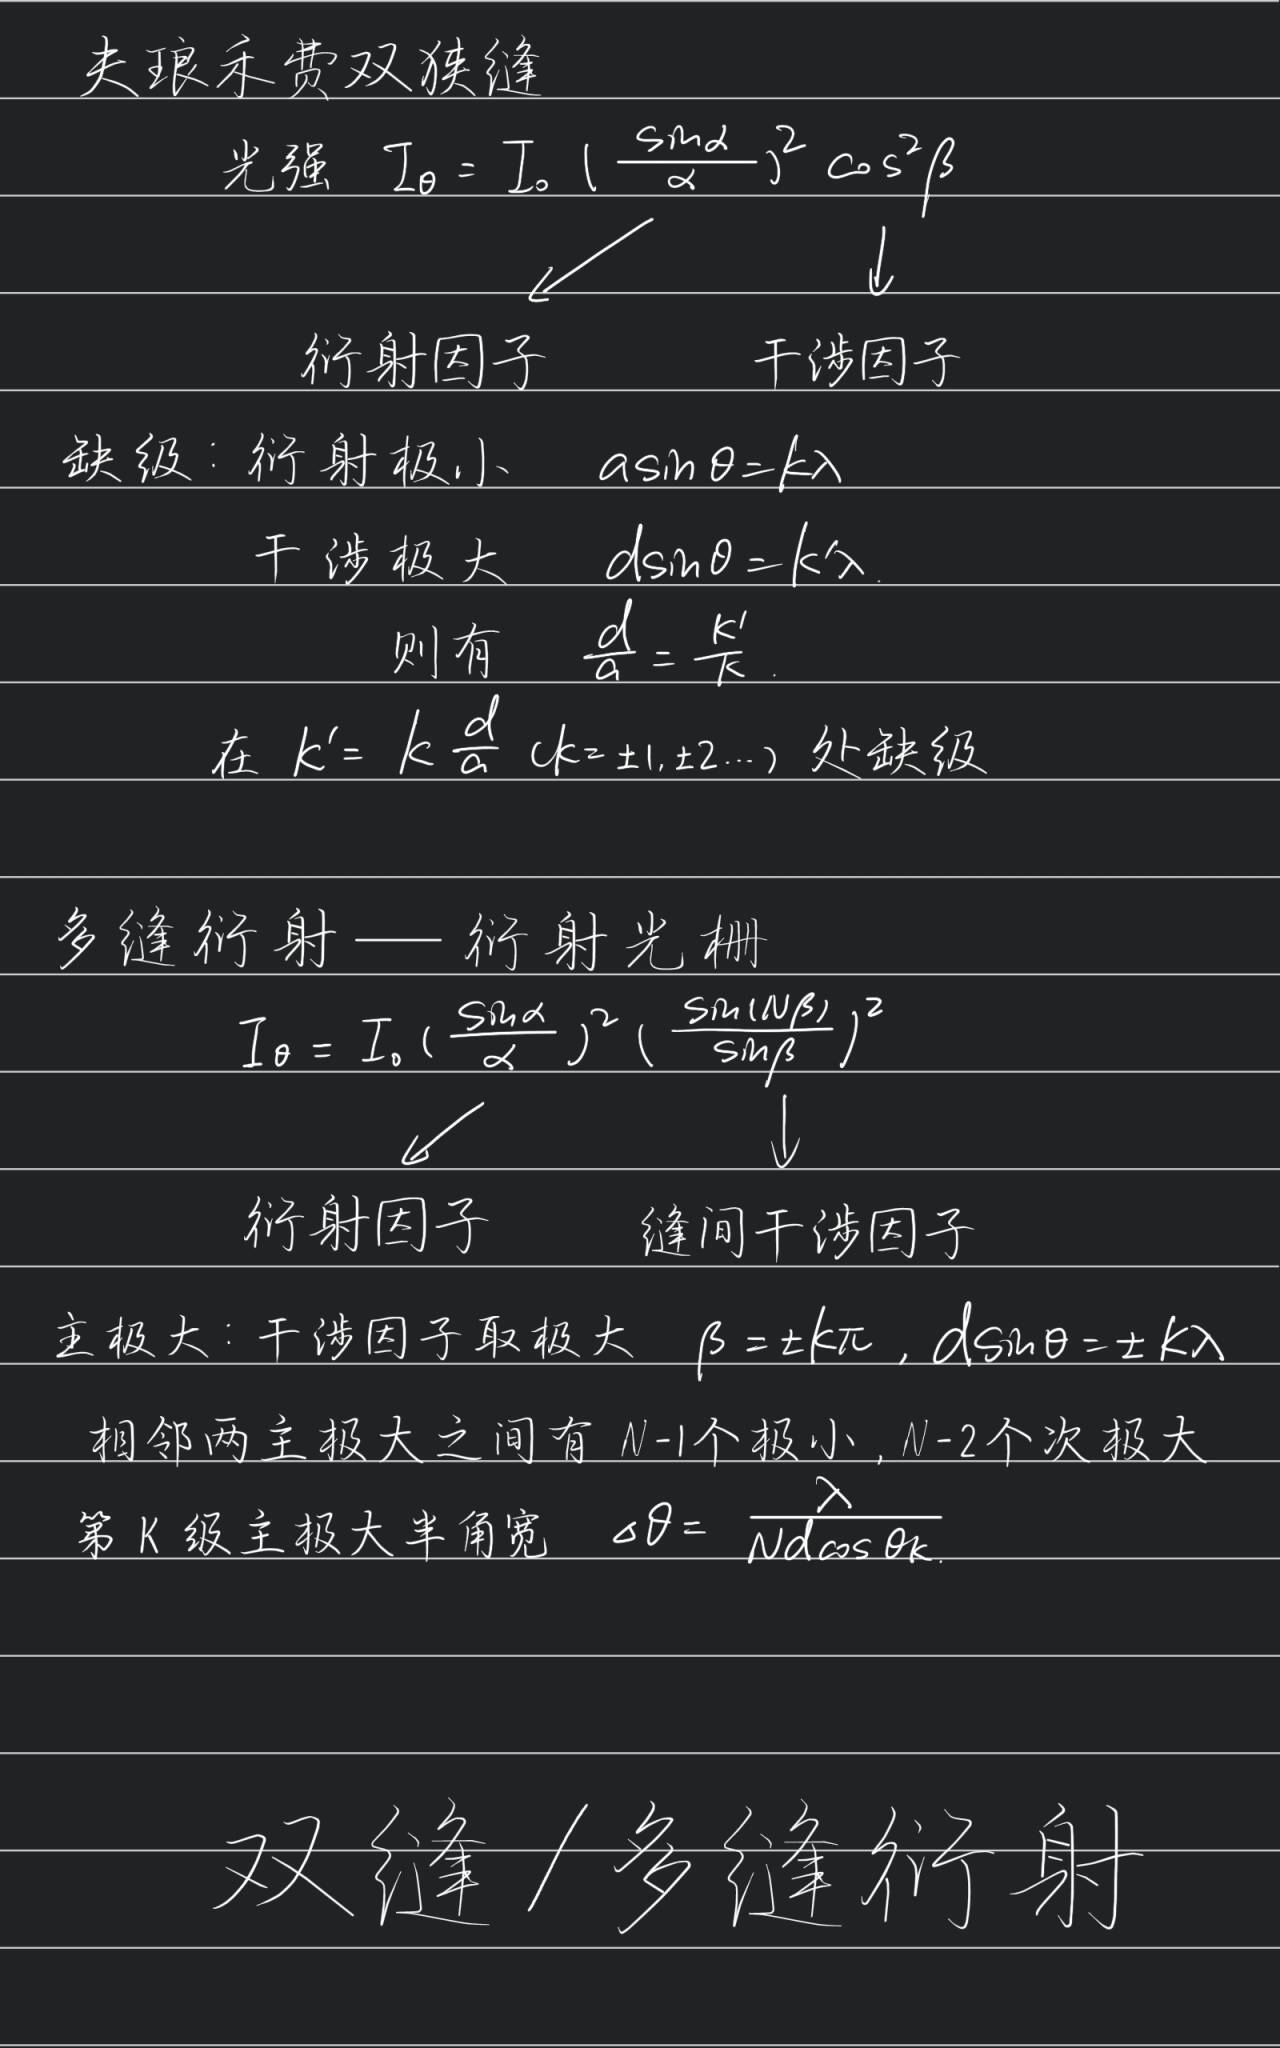 夫琅禾费双狭缝
光强 Iθ = I₀ (sinα/α)² cos²β
衍射因子 干涉因子
缺级：衍射极小 asinθ=kλ
干涉极大 dsinθ=k'λ.
则有 d/a = k'/k.
在 k'= k d/a (k=±1,±2…) 处缺级
多缝衍射——衍射光栅
Iθ = I₀ (sinα/α)² (sin(Nβ)/sinβ)²
衍射因子 缝间干涉因子
主极大：干涉因子取极大 β=±kπ, dsinθ=±kλ
相邻两主极大之间有 N-1个极小, N-2个次极大
第K级主极大半角宽 Δθ= λ/Ndcosθk.
双缝/多缝衍射